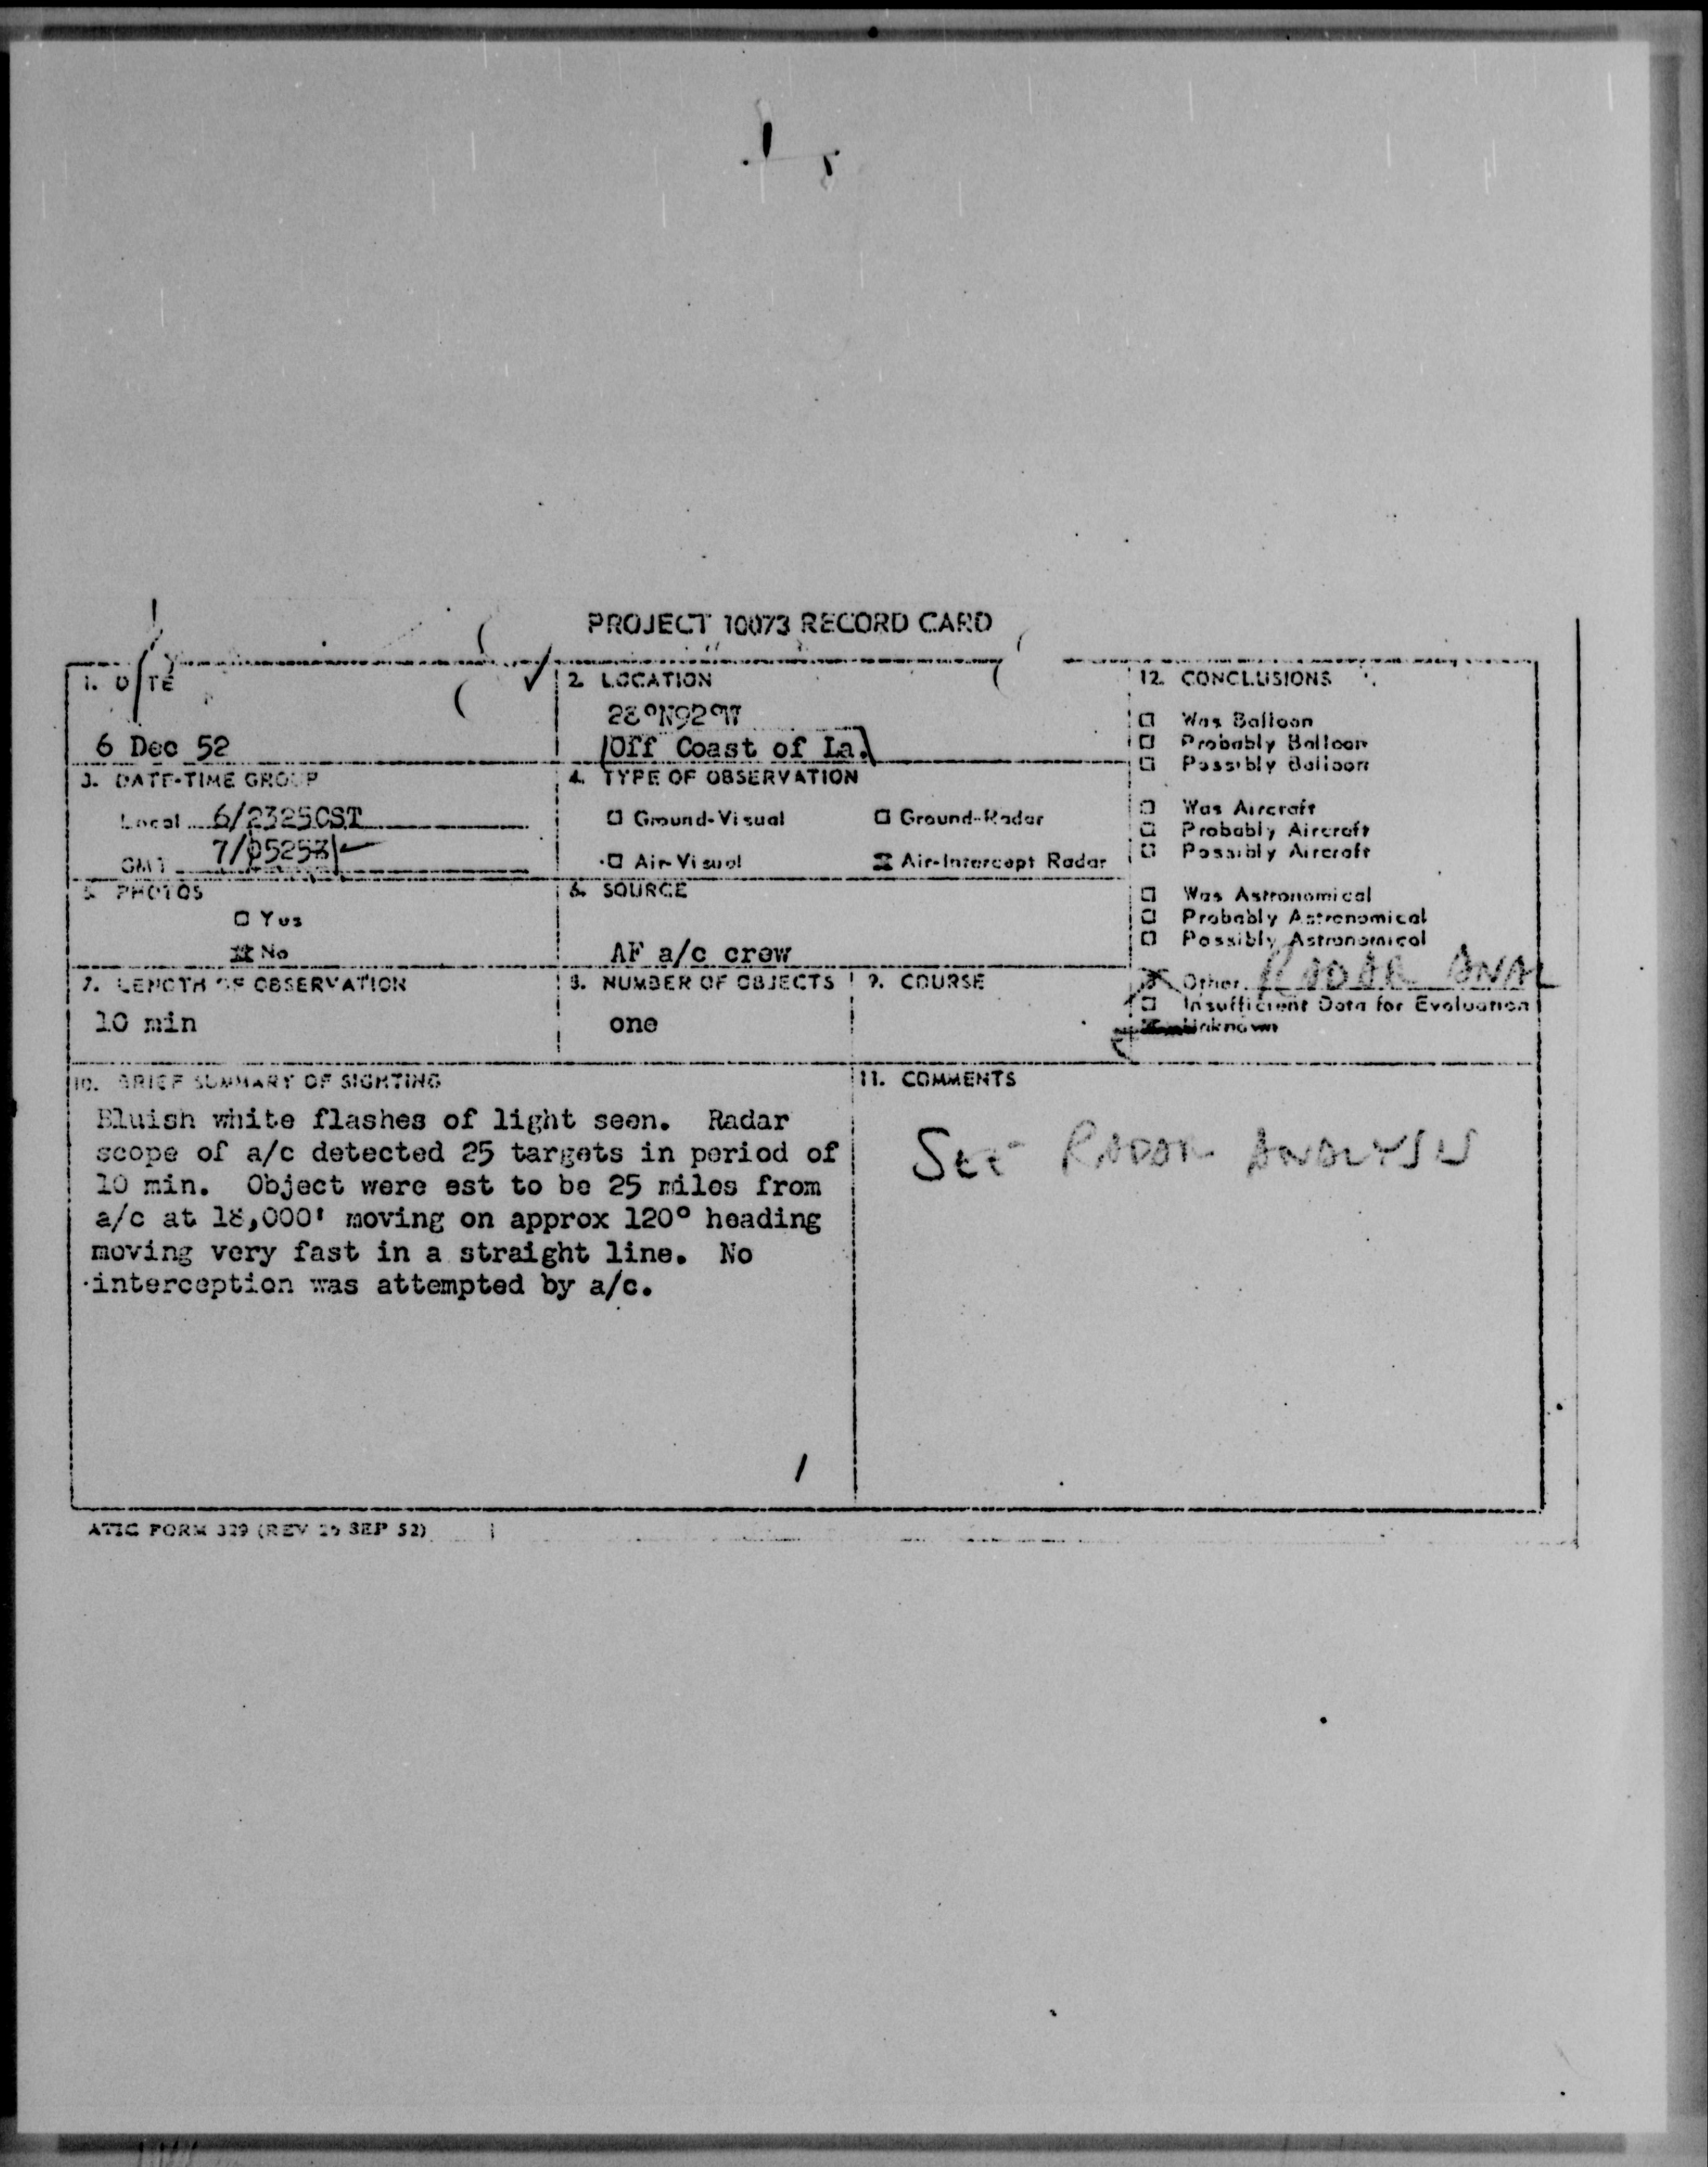 PROJECT 10073 RECORD CARD
1. DATE
6 Dec 52
2. LOCATION
28°N92°W
Off Coast of La.
12. CONCLUSIONS
☐ Was Balloon
☐ Probably Balloon
☐ Possibly Balloon
☐ Was Aircraft
☐ Probably Aircraft
☐ Possibly Aircraft
☐ Was Astronomical
☐ Probably Astronomical
☐ Possibly Astronomical
☒ Other RADAR ANAL
☐ Insufficient Data for Evaluation
Unknown
3. DATE-TIME GROUP
Local 6/2325CST
GMT 7/0525Z
4. TYPE OF OBSERVATION
☐ Ground-Visual ☐ Ground-Radar
☐ Air-Visual ☒ Air-Intercept Radar
5. PHOTOS
☐ Yes
☒ No
6. SOURCE
AF a/c crew
7. LENGTH OF OBSERVATION
10 min
8. NUMBER OF OBJECTS
one
9. COURSE
10. BRIEF SUMMARY OF SIGHTING
Bluish white flashes of light seen. Radar
scope of a/c detected 25 targets in period of
10 min. Object were est to be 25 miles from
a/c at 18,000' moving on approx 120° heading
moving very fast in a straight line. No
interception was attempted by a/c.
11. COMMENTS
SEE RADAR ANALYSIS
ATIC FORM 329 (REV 26 SEP 52)